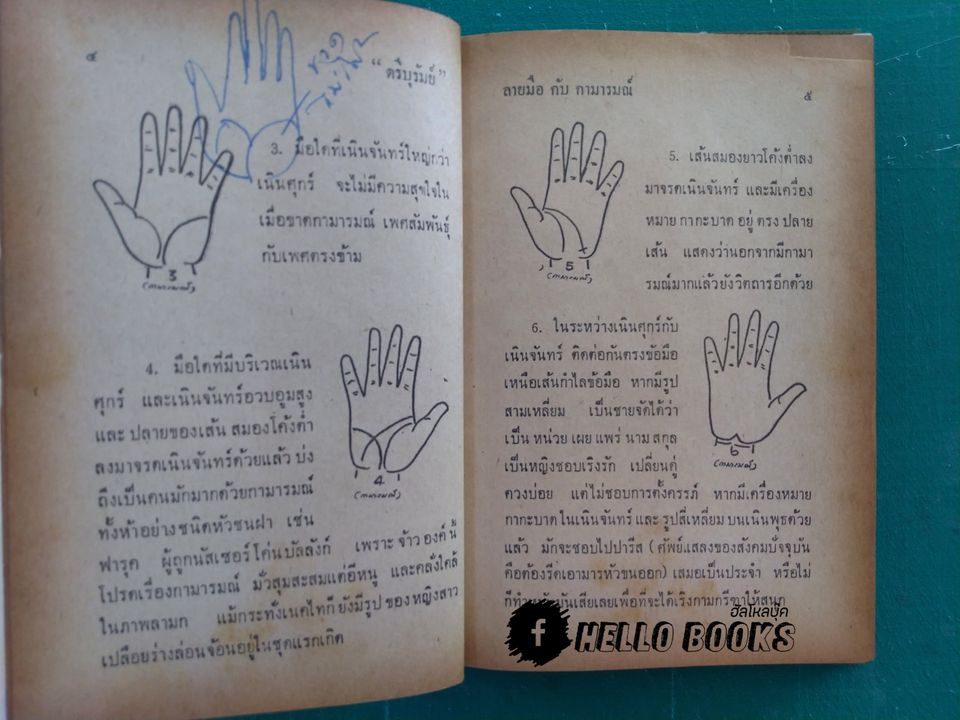 ๔
“ ตรีบุรัมย์ ”
3. มือใดที่เนินจันทร์ใหญ่กว่า
เนินศุกร์ จะไม่มีความสุขใจใน
เมื่อขาดกามารมณ์ เพศสัมพันธุ์
กับเพศตรงข้าม
3
(กามารมณ์)
4. มือใดที่มีบริเวณเนิน
ศุกร์ และเนินจันทร์อวบอูมสูง
และ ปลายของเส้น สมองโค้งต่ำ
ลงมาจรดเนินจันทร์ด้วยแล้ว บ่ง
ถึงเป็นคนมักมากด้วยกามารมณ์
ทั้งห้าอย่างชนิดหัวชนฝา เช่น
ฟารุค ผู้ถูกนัสเซอร์โค่นบัลลังก์ เพราะ จ้าว องค์ นี้
โปรดเรื่องกามารมณ์ มั่วสุมสะสมแต่อีหนู และคลั่งใคล้
ในภาพลามก แม้กระทั่งเนคไทก็ ยังมีรูป ของ หญิงสาว
เปลือยร่างล่อนจ้อนอยู่ในชุดแรกเกิด
4
(กามารมณ์)
ลายมือ กับ กามารมณ์
๕
5. เส้นสมองยาวโค้งต่ำลง
มาจรดเนินจันทร์ และมีเครื่อง
หมาย กา กะบาด อยู่ ตรง ปลาย
เส้น แสดงว่านอกจากมีกามา
รมณ์มากแล้วยังวิตถารอีกด้วย
5
(กามารมณ์)
6. ในระหว่างเนินศุกร์กับ
เนินจันทร์ ติดต่อกันตรงข้อมือ
เหนือเส้นกำไลข้อมือ หากมีรูป
สามเหลี่ยม เป็นชายจัดได้ว่า
เป็น หน่วย เผย แพร่ นาม สกุล
เป็นหญิงชอบเริงรัก เปลี่ยนคู่
ควงบ่อย แต่ไม่ชอบการตั้งครรภ์ หากมีเครื่องหมาย
กากะบาด ในเนินจันทร์ และ รูปสี่เหลี่ยม บนเนินพุธด้วย
แล้ว มักจะชอบไปปารีส ( ศัพย์แสลงของสังคมปัจจุบัน
คือต้องรีดเอามารหัวขนออก) เสมอเป็นประจำ หรือไม่
ก็ทำหมันเสียเลยเพื่อที่จะได้เริงกามกรีฑาให้สนุก
6
(กามารมณ์)
ฮัลโหลบุ๊ค
HELLO BOOKS